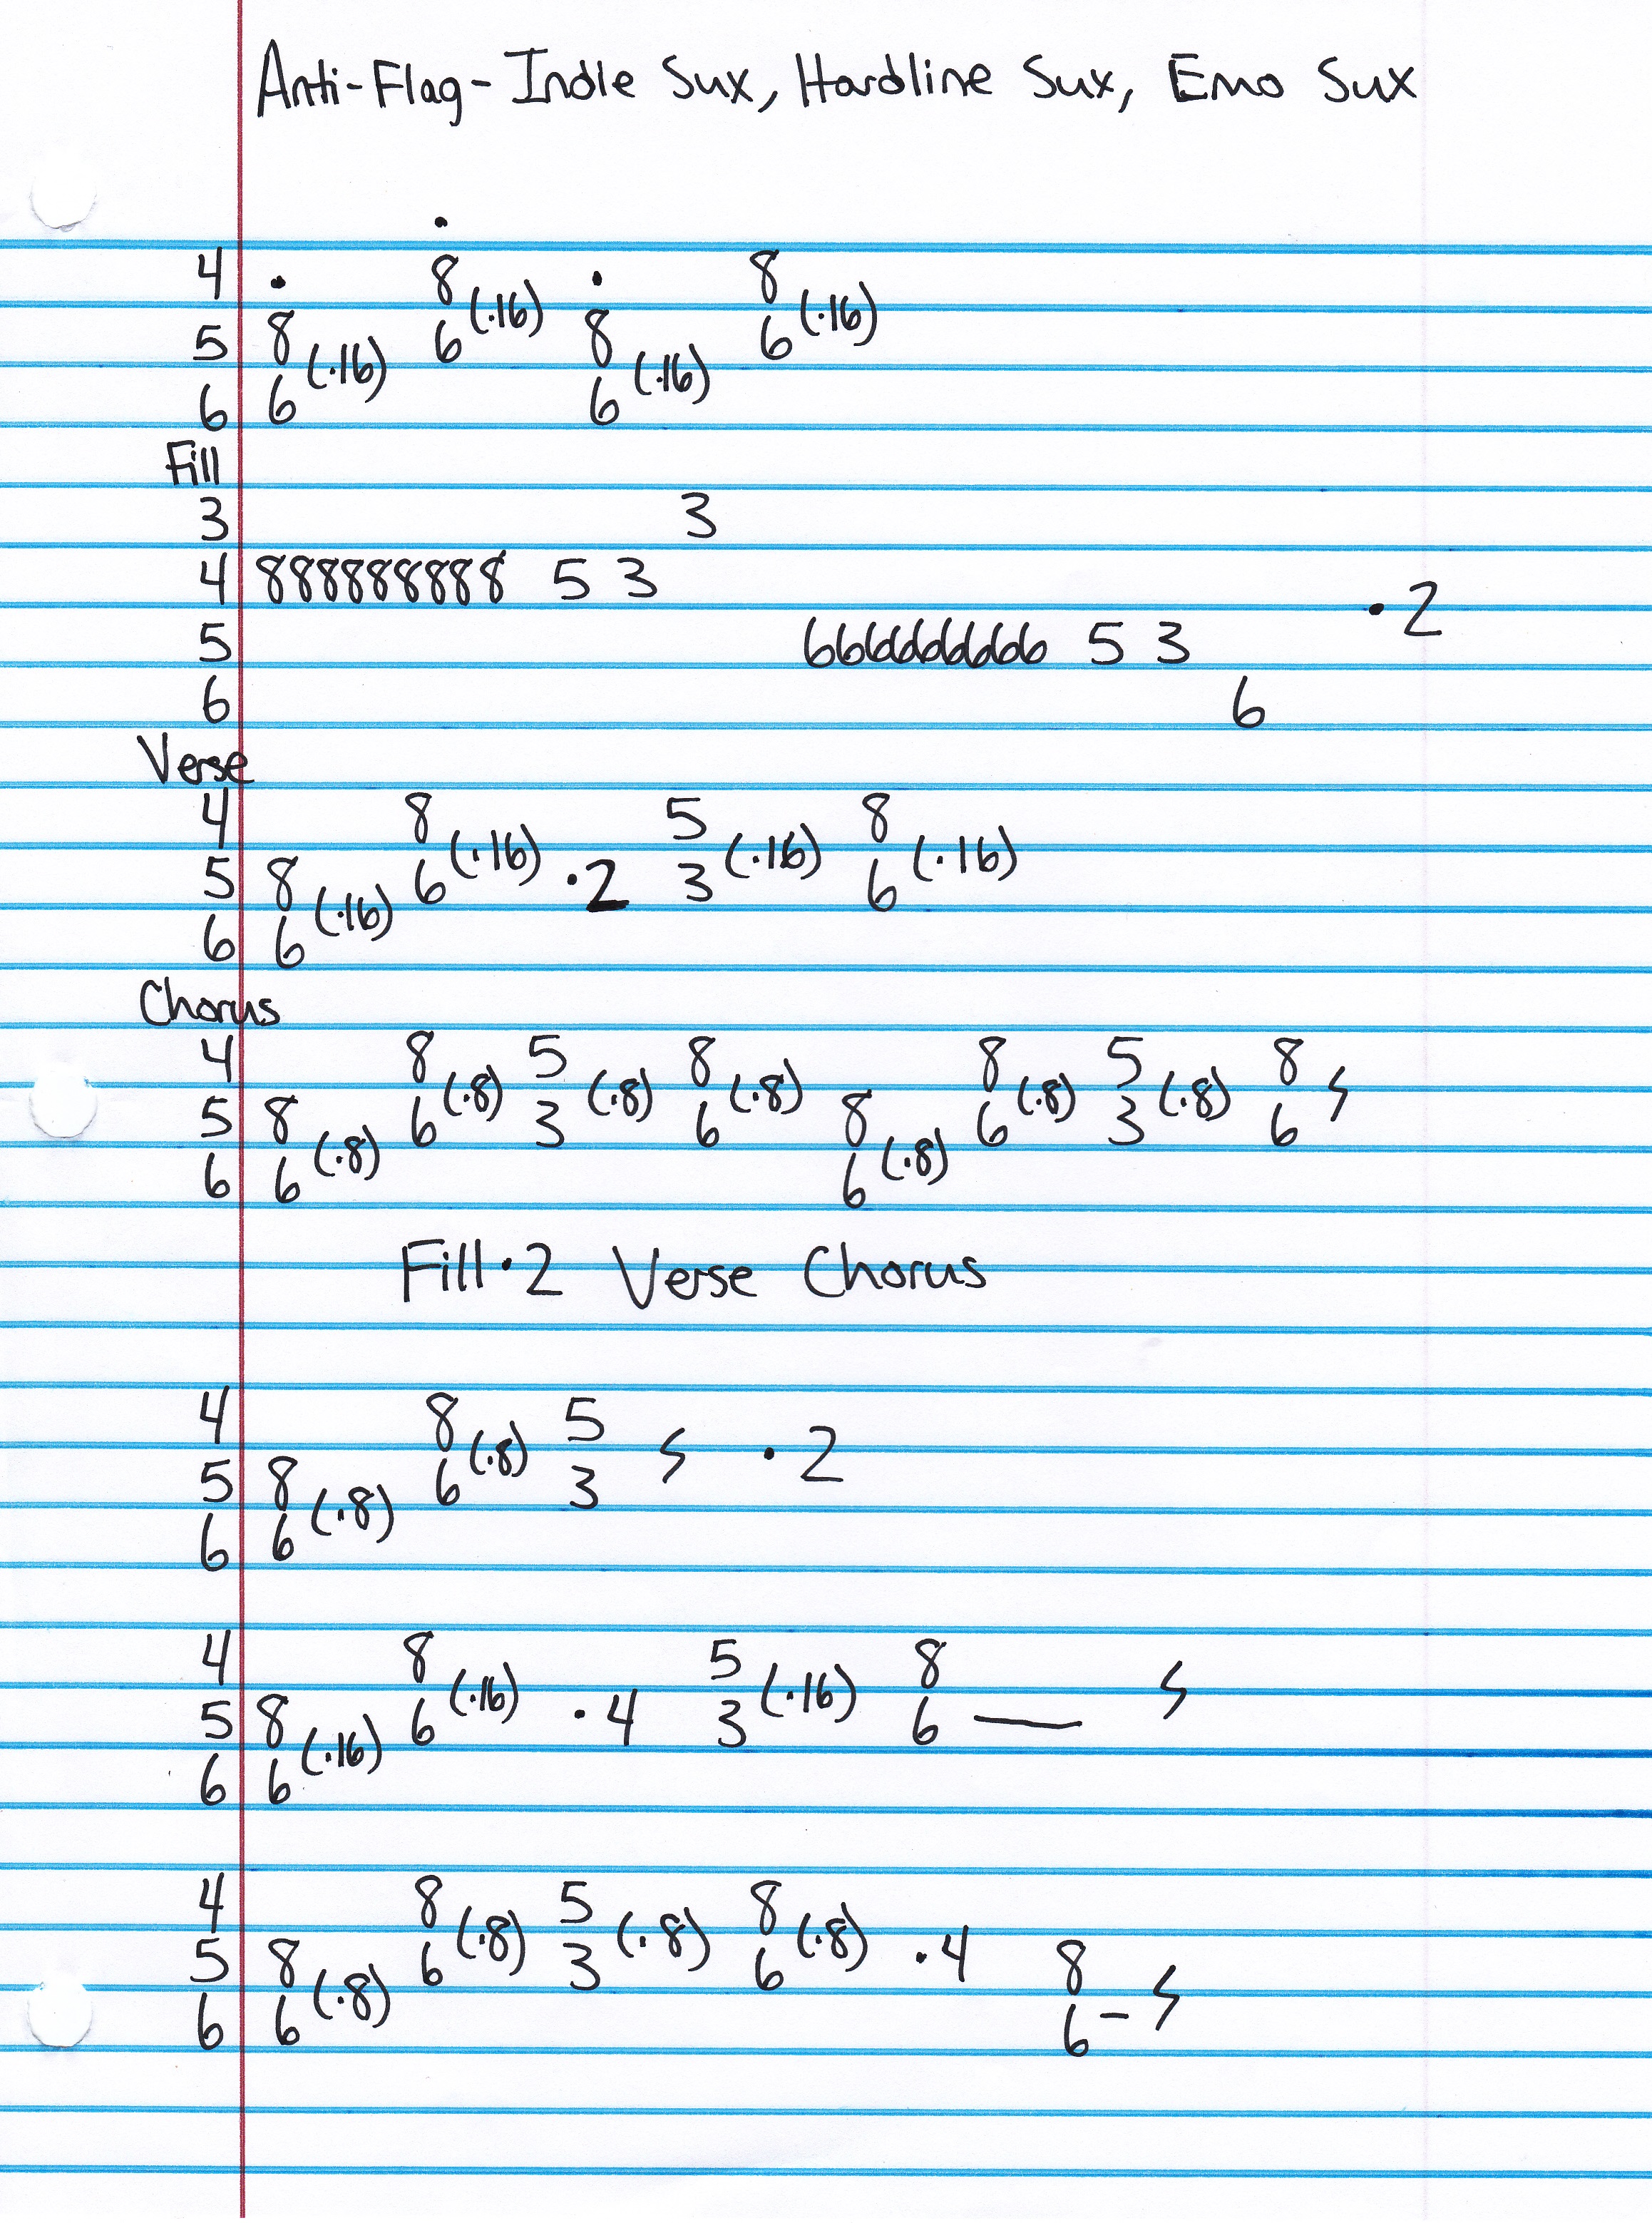 Anti-Flag - Indie Sux, Hardline Sux, Emo Sux
4 • 8 (·16) • 8 (·16)
5 8 (·16) 6 8 (·16) 6
6 6 6
Fill
3 3
4 888888888 5 3
5 666666666 5 3 · 2
6 6
Verse
4 8 (·16) 5 (·16) 8 (·16)
5 8 (·16) 6 ·2 3 6
6 6
Chorus
4 8 (·8) 5 (·8) 8 (·8) 8 (·8) 5 (·8) 8
5 8 (·8) 6 3 6 8 (·8) 6 3 6
6 6 6
Fill · 2 Verse Chorus
4 8 (·8) 5 · 2
5 8 (·8) 6 3
6 6
4 8 (·16) · 4 5 (·16) 8
5 8 (·16) 6 3 6 —
6 6
4 8 (·8) 5 (·8) 8 (·8) · 4
5 8 (·8) 6 3 6 8
6 6 6 –